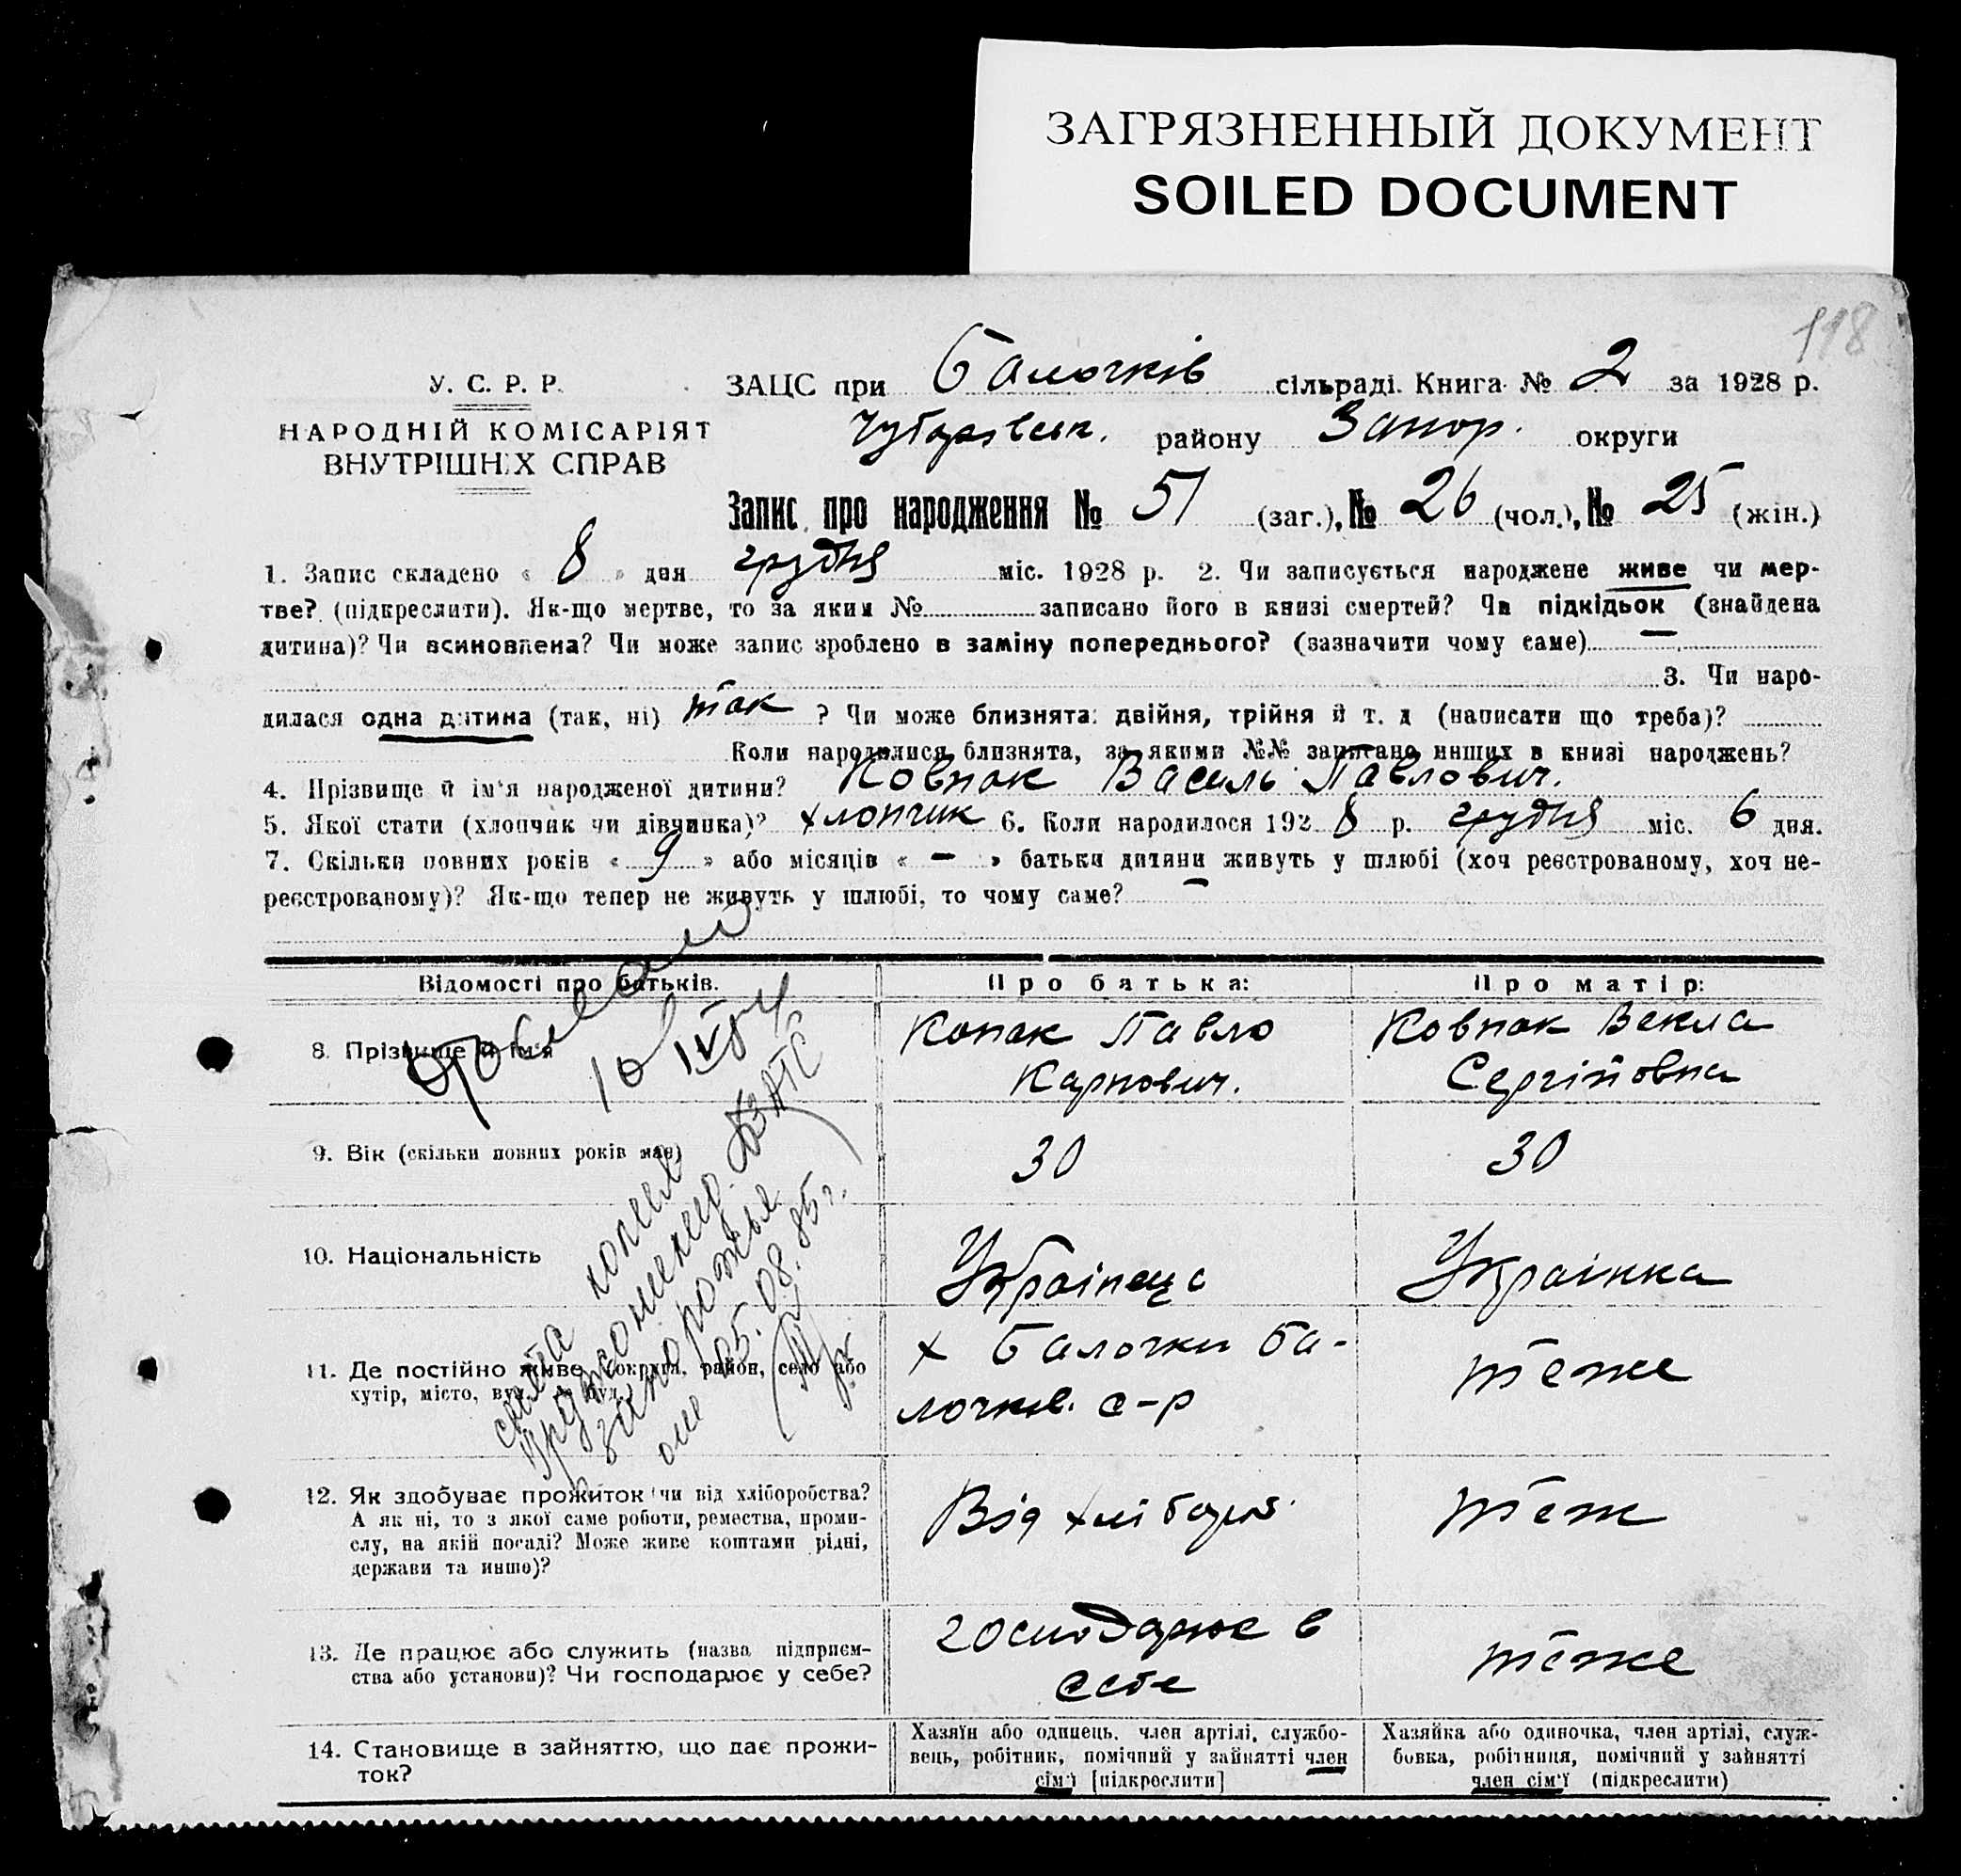 ЗАГРЯЗНЕННЫЙ ДОКУМЕНТ
SOILED DOCUMENT
118
У. С. Р. Р.
НАРОДНІЙ КОМІСАРІЯТ
ВНУТРІШНІХ СПРАВ
ЗАЦС при Балочків сільраді. Книга № 2 за 1928 р.
Чубарівськ. району Запор. округи
Запис про народження № 51 (заг.), № 26 (чол.), № 25 (жін.)
1. Запис складено « 8 » дня грудня міс. 1928 р. 2. Чи записується народжене живе чи мер-
тве? (підкреслити). Як-що мертве, то за яким № записано його в книзі смертей? Чи підкідьок (знайдена
дитина)? Чи всиновлена? Чи може запис зроблено в заміну попереднього? (зазначити чому саме) —
3. Чи наро-
дилася одна дитина (так, ні) так ? Чи може близнята: двійня, трійня й т. д (написати що треба)?
Коли народилися близнята, за якими №№ записано инших в книзі народжень?
4. Прізвище й ім'я народженої дитини? Ковпак Василь Павлович.
5. Якої стати (хлопчик чи дівчинка)? хлопчик 6. Коли народилося 1928 р. грудня міс. 6 дня.
7. Скільки повних років « 9 » або місяців « — » батьки дитини живуть у шлюбі (хоч реєстрованому, хоч не-
реєстрованому)? Як-що тепер не живуть у шлюбі, то чому саме? —
Відомості про батьків.
Про батька:
Про матір:
8. Прізвище й ім'я
Копак Павло
Карпович.
Ковпак Векла
Сергіївна
9. Вік (скільки повних років має)
30
30
10. Національність
Українець
Українка
11. Де постійно живе (округа, район, село або
хутір, місто, вул. № буд.
х Балочки Ба-
лочків. с-р
теже
12. Як здобуває прожиток чи від хліборобства?
А як ні, то з якої саме роботи, ремества, проми-
слу, на якій посаді? Може живе коштами рідні,
держави та иншо)?
Від хлібороб.
теж
13. Де працює або служить (назва підприєм-
ства або установи)? Чи господарює у себе?
господарює в
себе
теже
14. Становище в зайняттю, що дає прожи-
ток?
Хазяїн або одинець, член артілі, службо-
вець, робітник, помічний у зайнятті член
сім'ї [підкреслити]
Хазяйка або одиночка, член артілі, служ-
бовка, робітниця, помічний у зайнятті
член сім'ї (підкреслити)
снята копия
Орджоникид. ЗАГС
г. Запорожья
05.08.85 г.